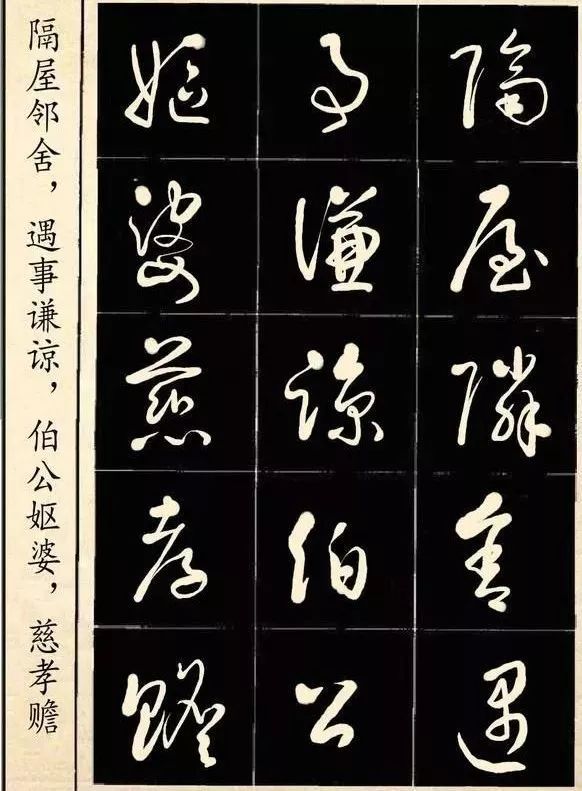 隔屋邻舍，遇事谦谅，伯公妪婆，慈孝赡
隔屋隣舍遇
事謙諒伯公
嫗婆慈孝贍